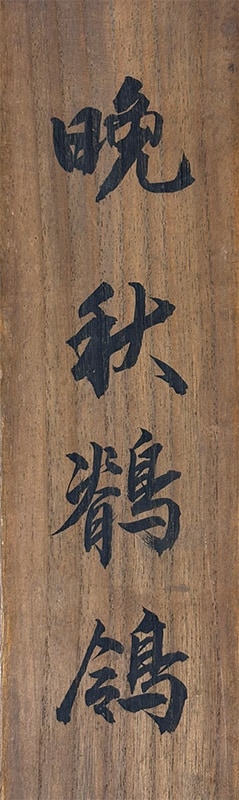 晩秋鶺鴒